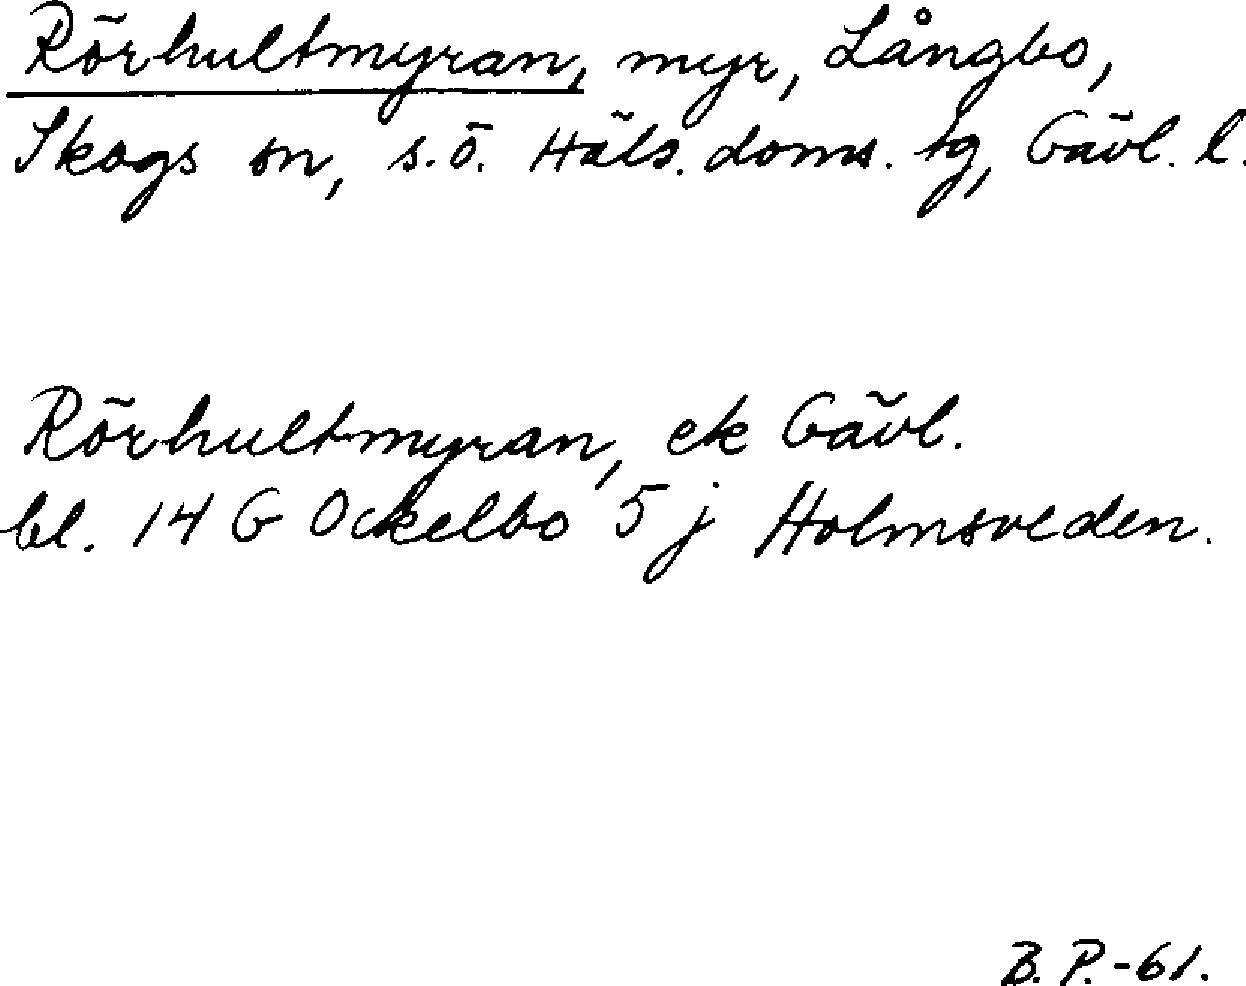 Rörhultmyran, myr, Långbo,
Skogs sn, s.ö. Häls. doms. tg, Gävl. l.
Rörhultmyran, ek Gävl.
bl. 14 G Ockelbo 5 j Holmsveden.
B. P. -61.